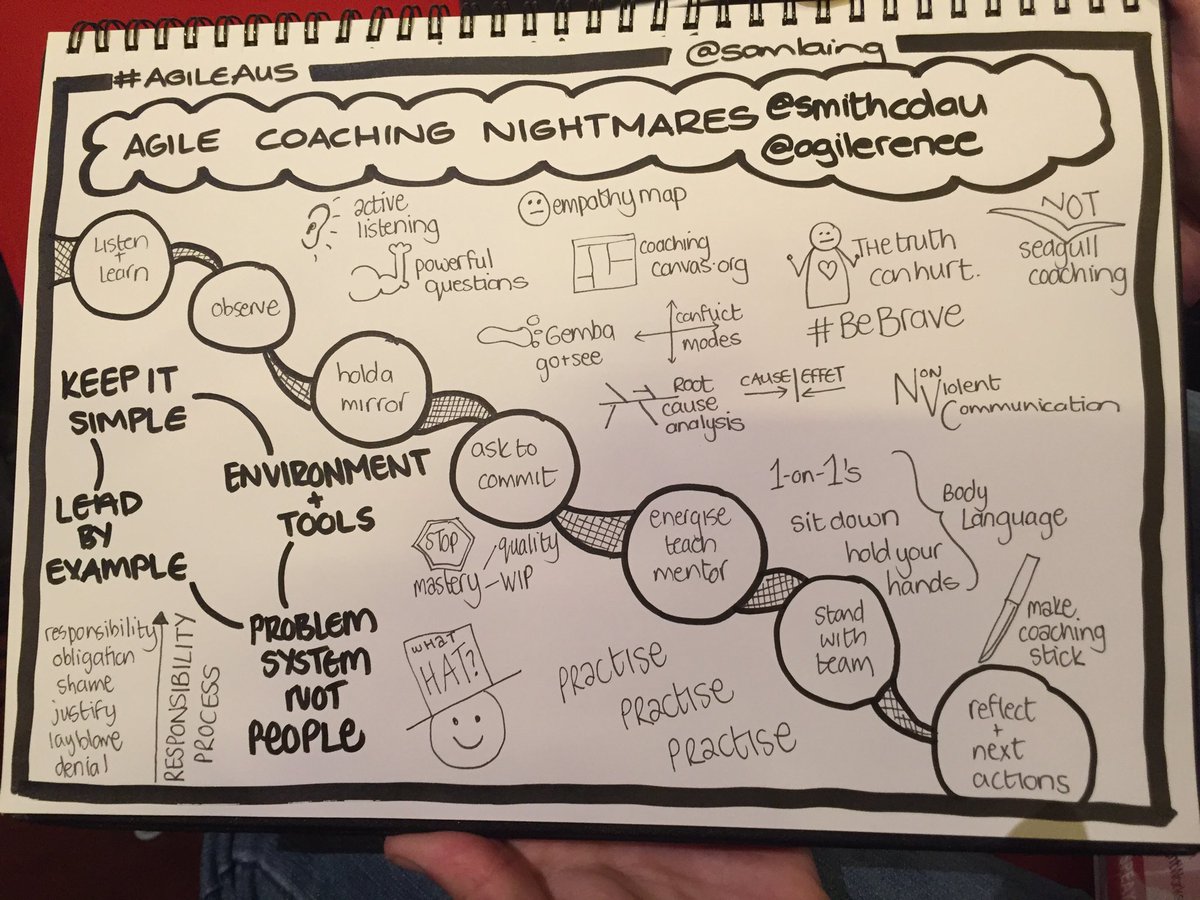 #AGILEAUS
@samlaing
AGILE COACHING NIGHTMARES
@smithcdau
@agilerenee
Listen
+
learn
observe
hold a
mirror
ask to
commit
energise
teach
mentor
stand
with
team
reflect
+
next
actions
active
listening
powerful
questions
empathy map
coaching
canvas.org
THE truth
can hurt.
#BeBrave
NOT
seagull
coaching
Gemba
go+see
conflict
modes
ROOT
cause
analysis
CAUSE | EFFET
NON
Violent
Communication
1-on-1's
sit down
hold your
hands
Body
Language
make
coaching
stick
KEEP IT
SIMPLE
ENVIRONMENT
+
TOOLS
LEAD
BY
EXAMPLE
PROBLEM
SYSTEM
NOT
PEOPLE
STOP
quality
mastery – WIP
responsibility
obligation
shame
justify
lay blame
denial
RESPONSIBILITY
PROCESS
WHAT
HAT?
PRACTISE
PRACTISE
PRACTISE